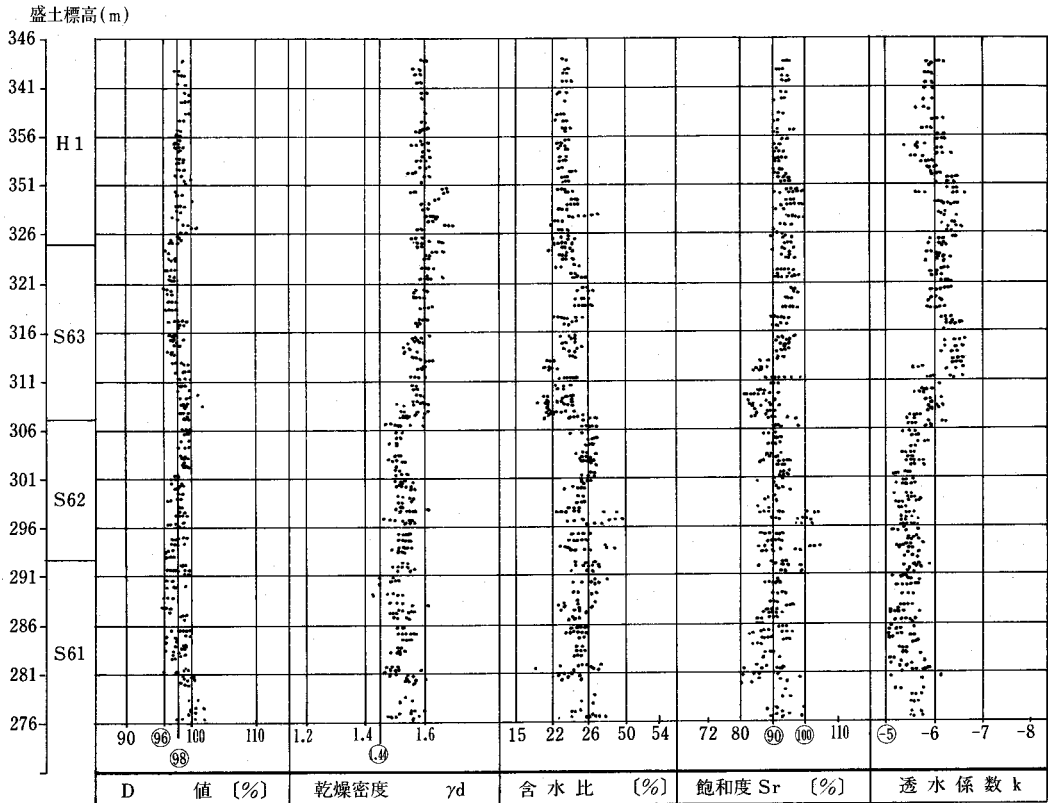 盛土標高(m)
346
341
356
351
326
321
316
311
306
301
296
291
286
281
276
H1
S63
S62
S61
90 96 98 100 110
1.2 1.4 1.44 1.6
15 22 26 50 54
72 80 90 100 110
-5 -6 -7 -8
D 値 〔%〕
乾燥密度 γd
含水比 〔%〕
飽和度 Sr 〔%〕
透水係数 k